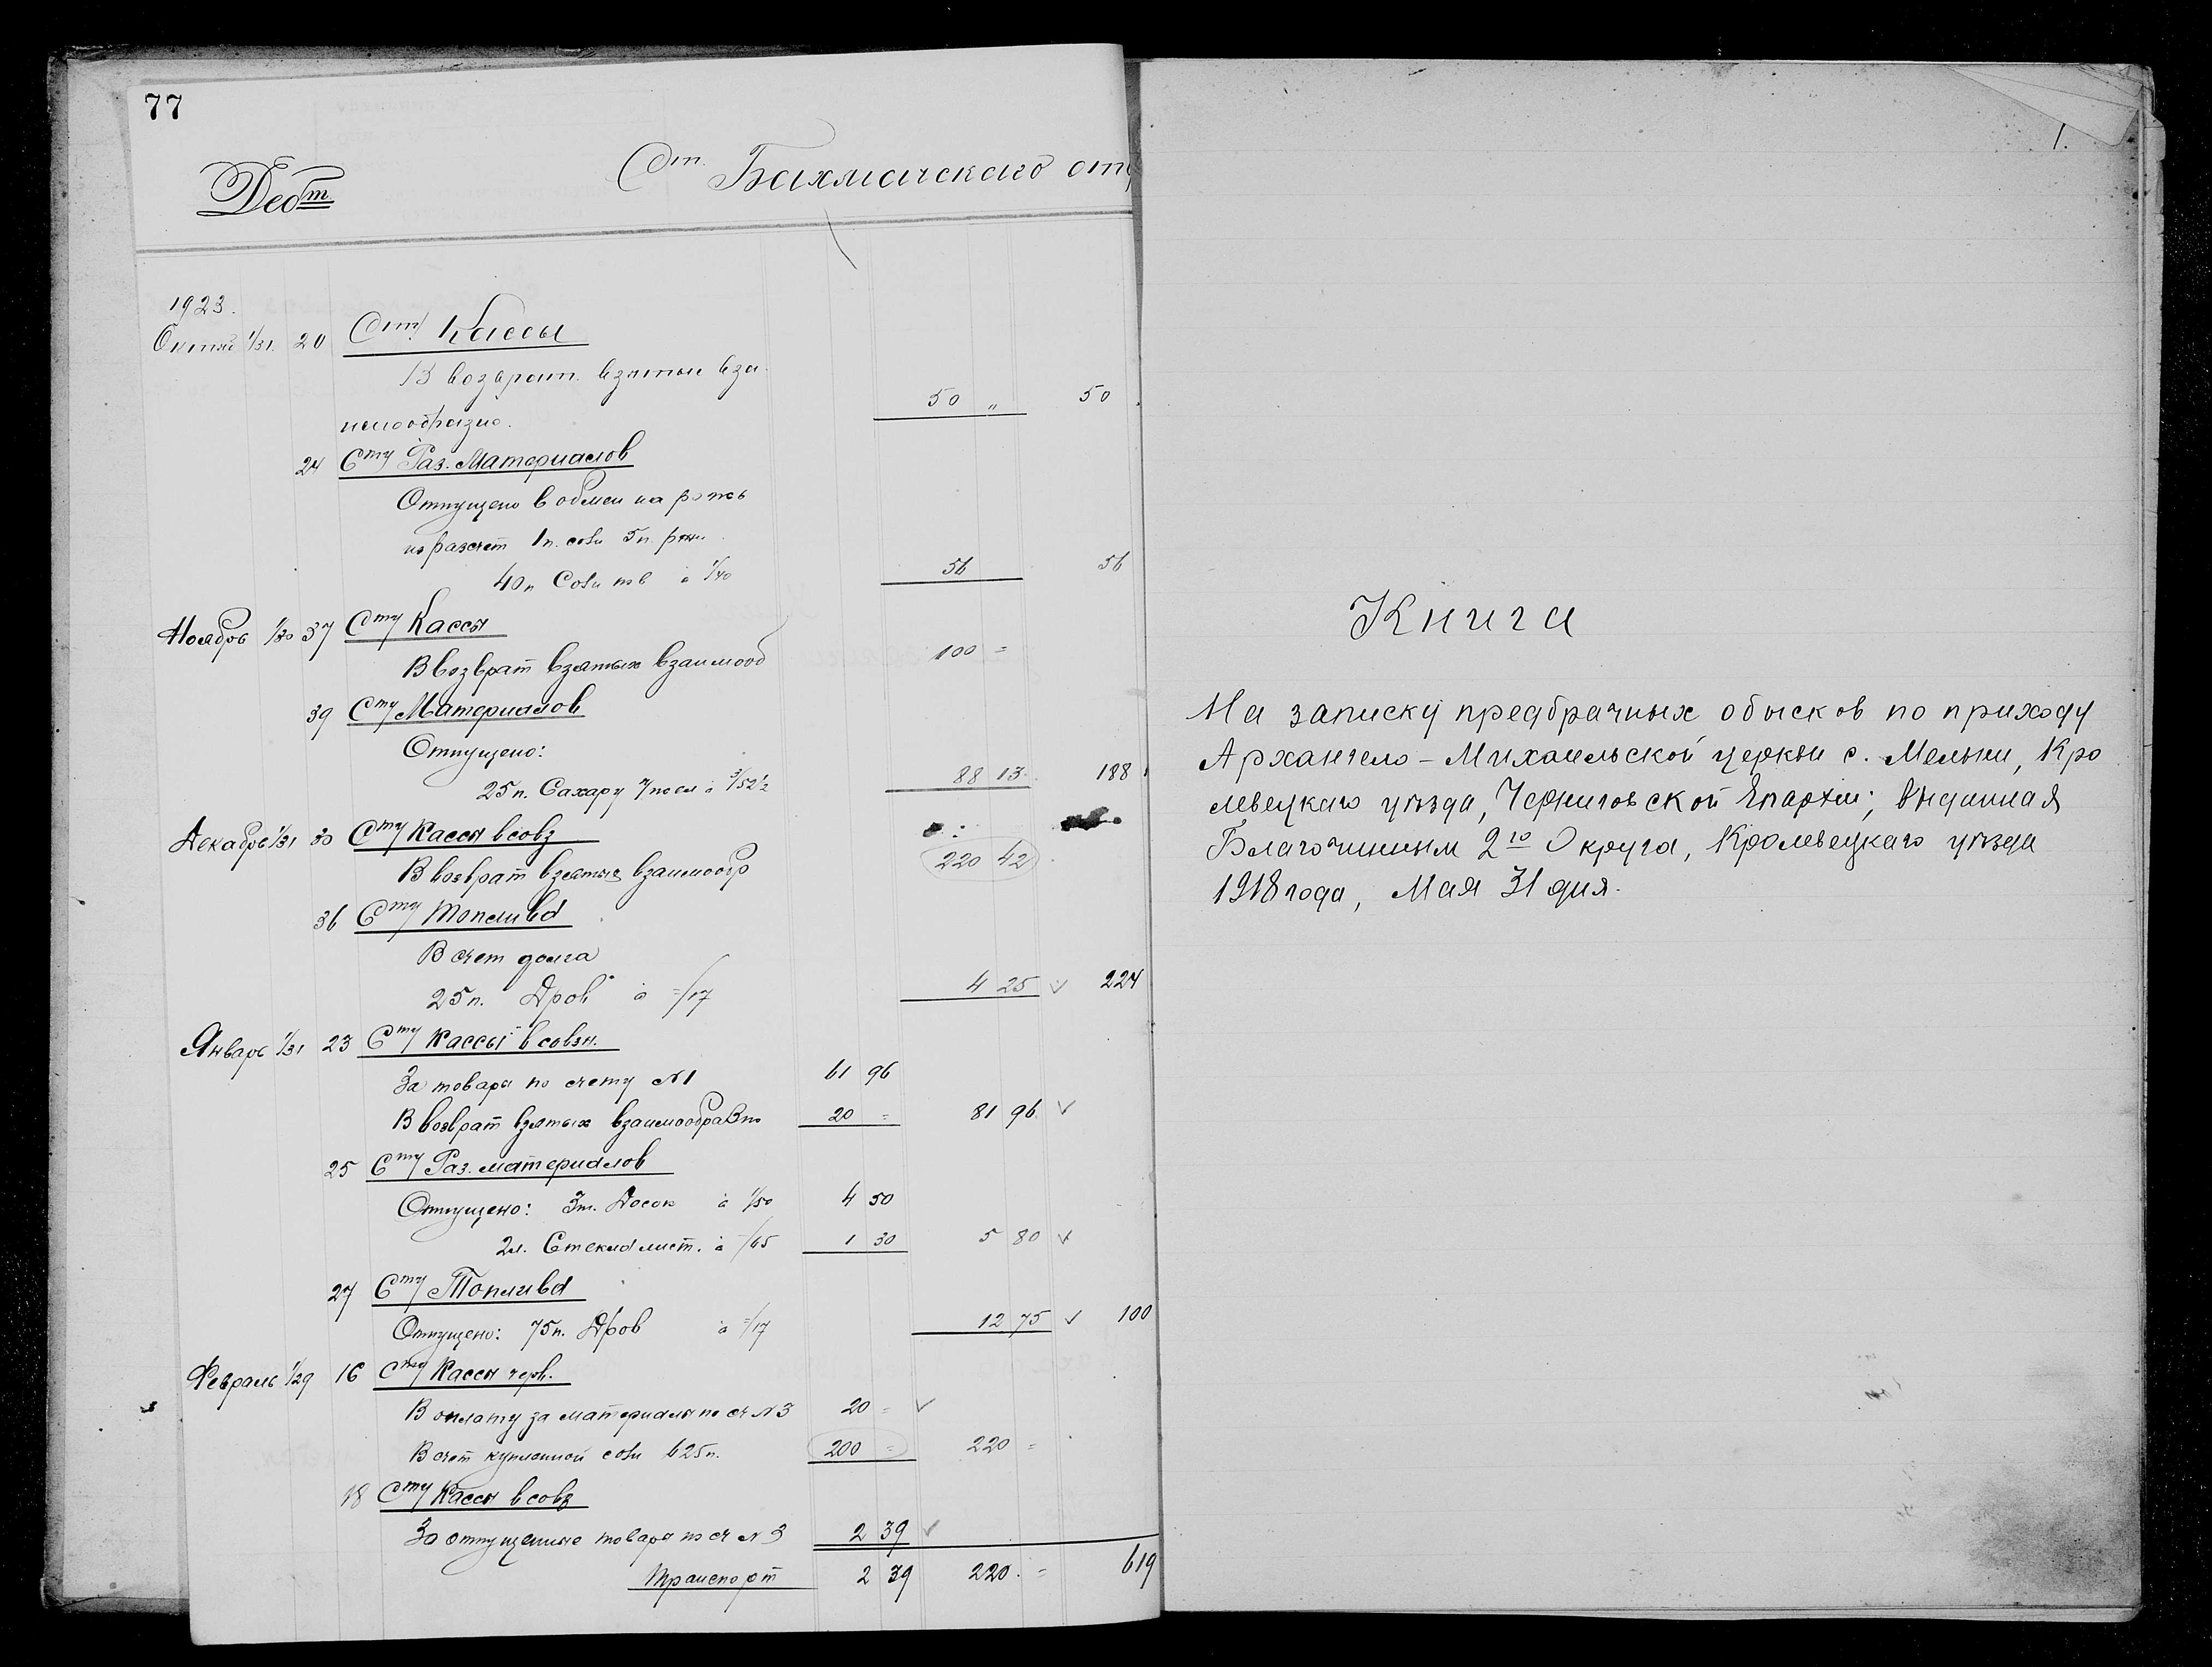 77
Дебт.
Ст. Бахмачскаго от
1923.
Октяб 1/31. 20 Сту Кассы
В возврат. взятые вза
имообразно. 50 " 50
24 Сту Раз. Материалов
Отпущено в обмен на рожь
из разсчет 1п. соли 5п. ржи
40п Соли по в à 1/40 56 56
Ноябрь 1/30 37 Сту Кассы
В возврат взятых взаимооб 100 =
39 Сту Материалов
Отпущено:
25п. Сахару à 3/52½ 88 13 188
Декабрь 1/31 30 Сту Кассы в совз
В возврат взятые взаимообр 220 42
36 Сту Топлива
В счет долга
25п. Дров à =/17 4 25 224
Январь 1/31 23 Сту Кассы в совзн.
За товары по счету №1 61 96
В возврат взятых взаимообразно 20 = 81 96
25 Сту Раз. материалов
Отпущено: 3т. Досок à 1/50 4 50
2л. Стекла лист. à -/65 1 30 5 80
27 Сту Топлива
Отпущено: 75п. Дров à =/17 12 75 100
Февраль 1/29 16 Сту Кассы черв.
В оплату за материалы по сч №3 20 =
В счет купленной соли 625п. 200 = 220 =
18 Сту Кассы в совз
За отпущенные товары по сч №3 2 39
Транспорт 2 39 220. = 619
1.
Книга
На записку предбрачных обысков по приходу
Архангело-Михаильской церкви с. Мельни, Кро
левецкаго уѣзда, Черниговской Епархіи; выданная
Благочинным 2го Округа, Кролевецкаго уѣзда
1918 года, Мая 31 дня.